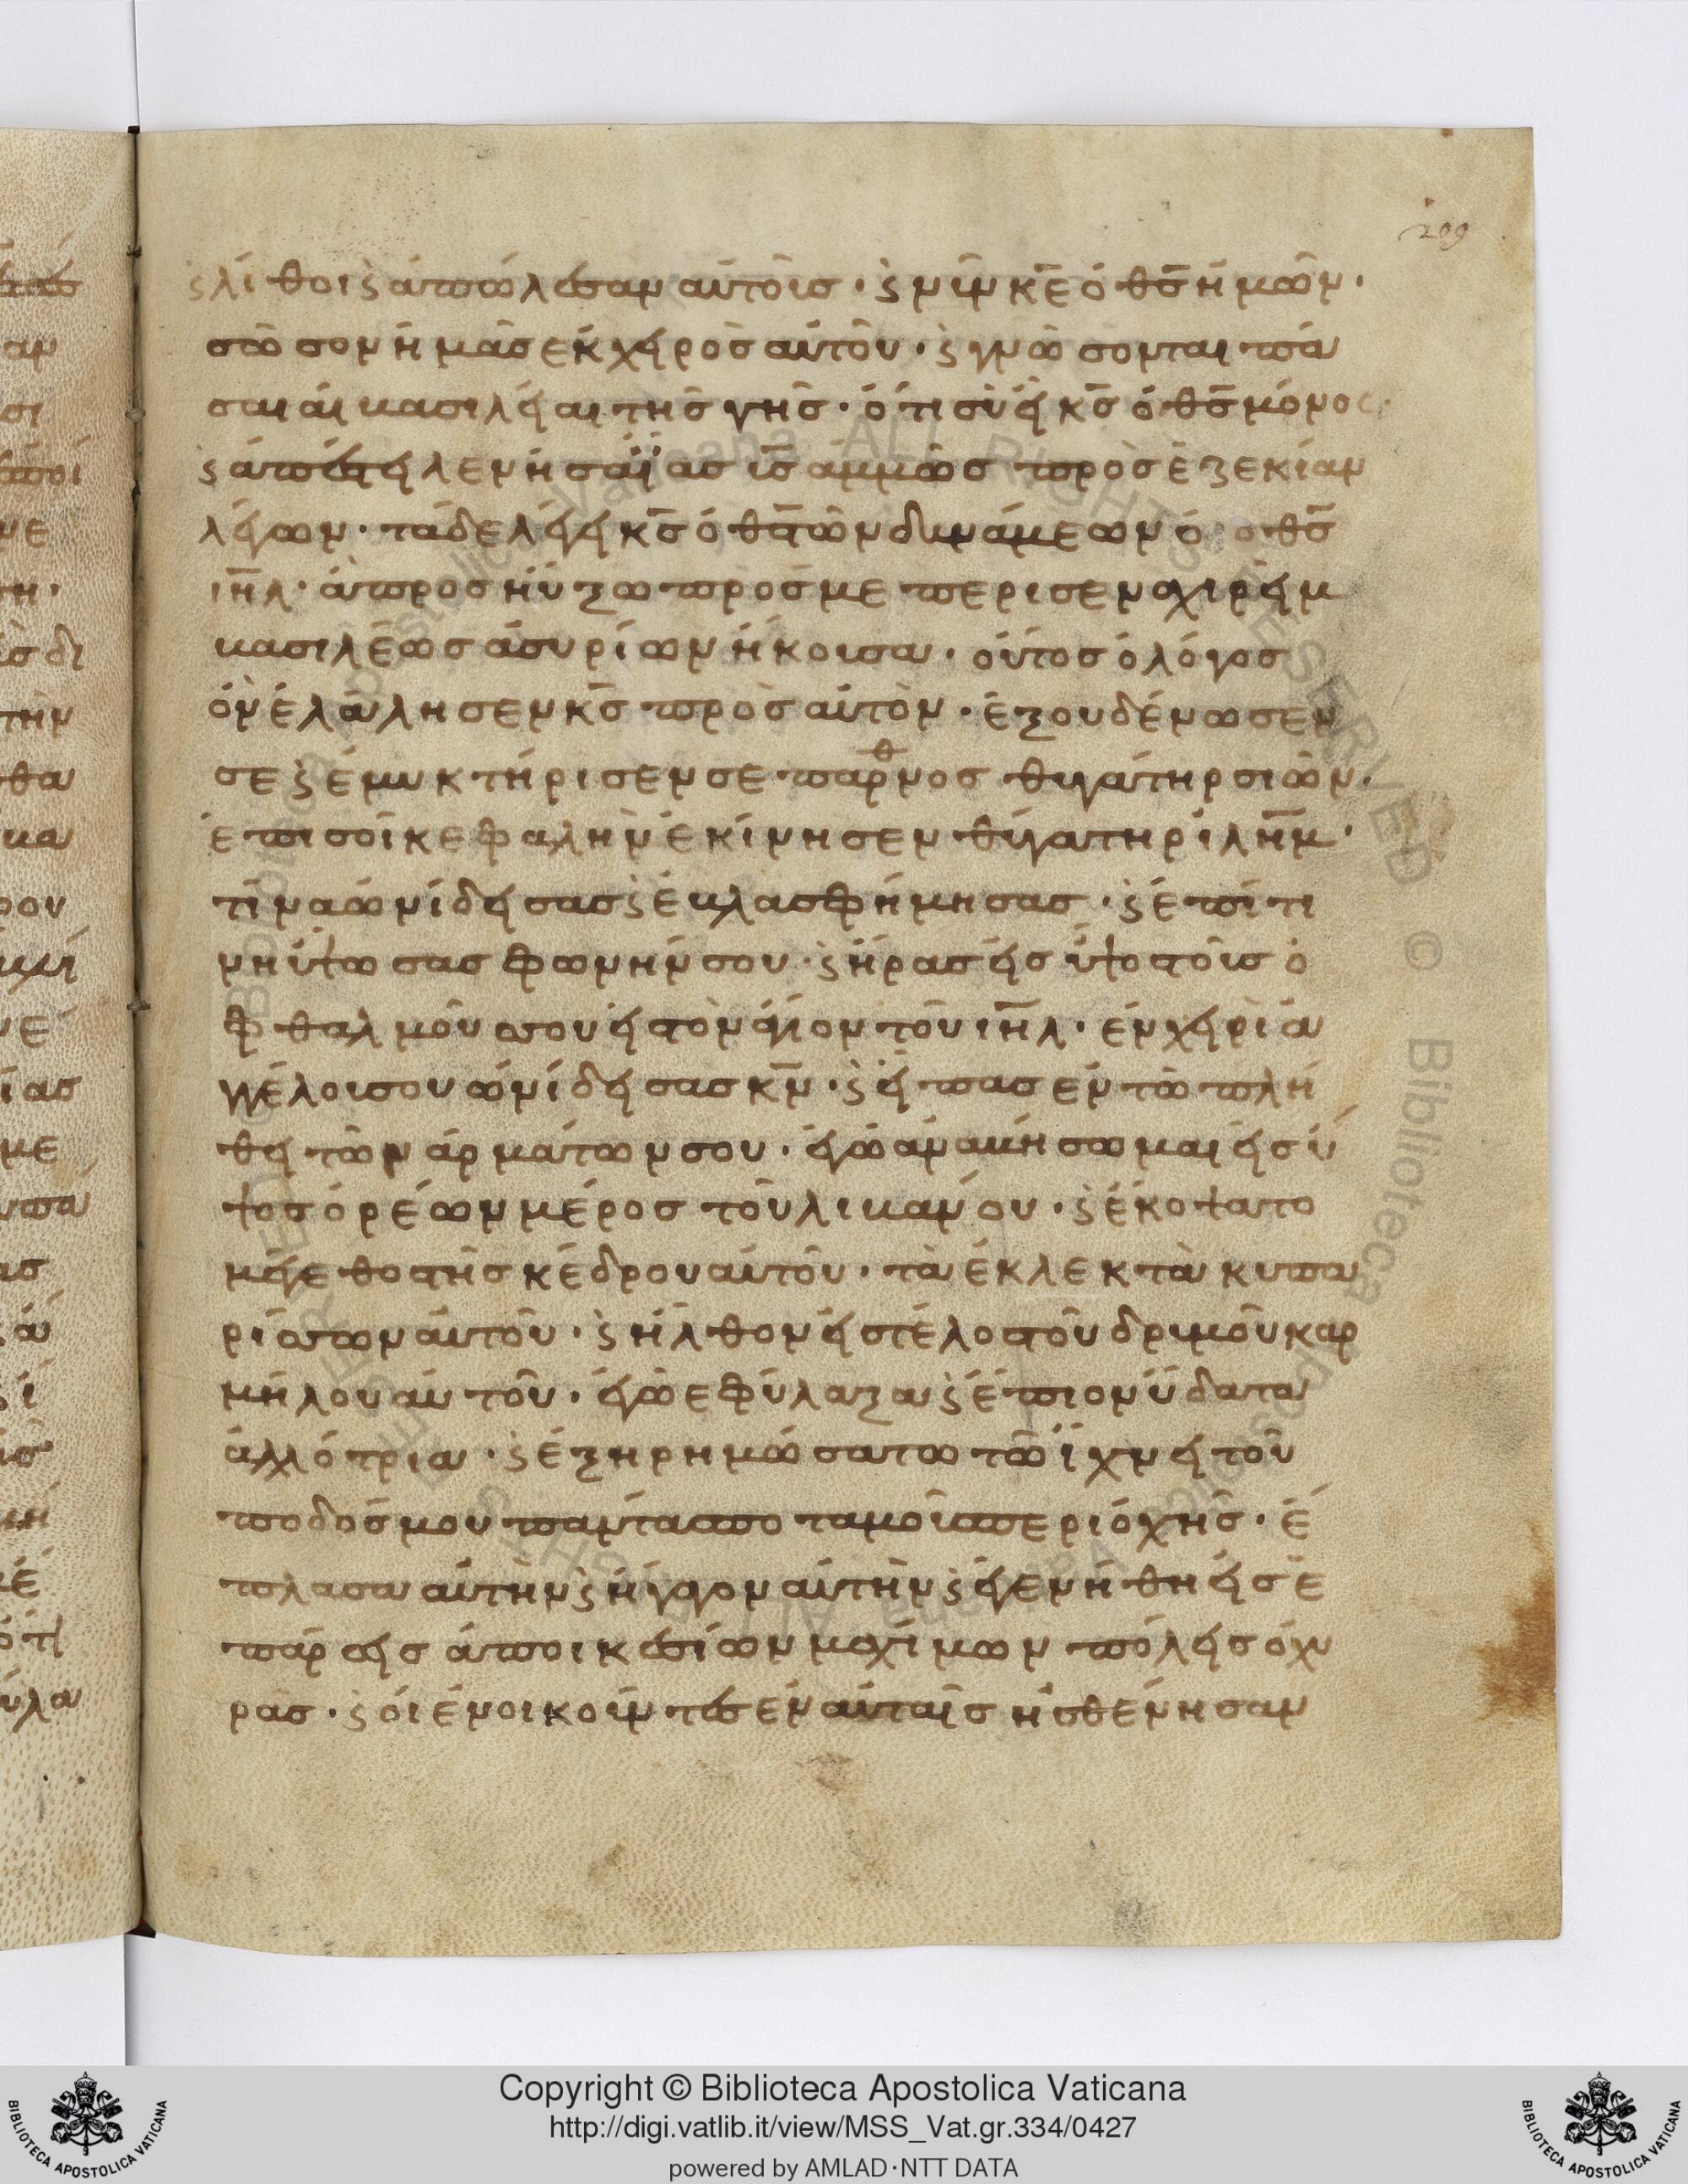 209
ϛ λίθοι ϛ ἀπώλεσαν αὐτοῖσ · ϛ νῦν κ̅ε̅ ὁ θ̅σ̅ ἡμῶν ·
σῶσον ἡμᾶσ ἐκ χειρὸσ αὐτοῦ · ϛ γνώσονται πᾶ
σαι αἱ βασιλεῖαι τῆσ γῆσ · ὅτι σὺ εἶ κ̅σ̅ ὁ θ̅σ̅ μόνοσ ·
ϛ ἀπέστειλεν ἡσαΐασ υ̅σ̅ ἀμμὼσ πρὸσ ἐζεκίαν
λέγων · τάδε λέγει κ̅σ̅ ὁ θ̅σ̅ τῶν δυνάμεων ὁ θ̅σ̅
ι̅η̅λ̅ · ἃ προσηύξω πρόσ με περι σεναχιρεὶμ
βασιλέωσ ἀσυρίων ἤκουσα · οὗτοσ ὁ λόγοσ
ὃν ἐλάλησεν κ̅σ̅ πρὸσ αὐτὸν · ἐξουδένωσεν
σε ϛ ἐμυκτήρισεν σε παρθνοσ θυγάτηρ σιών ·
ἐπι σοὶ κεφαλὴν ἐκίνησεν θυγάτηρ ι̅λ̅η̅μ̅ ·
τίνα ὠνίδησασ ϛ ἐβλασφήμησασ · ϛ ἐπὶ τί
νη ὕψωσασ φωνήν σου · ϛ ἦρασ εἰσ ὕψοσ τοῖσ ὀ
φθαλμοῦσ σου εἰσ τὸν ἅγιον τοῦ ι̅η̅λ̅ · ἐν χειρὶ ἀ
γγέλοισου ὠνίδησασ κ̅ν̅ · ϛ εἶπασ ἐν τῶ πλή
θει τῶν ἁρμάτων σου · ἐγὼ ἀναβήσωμαι εἰσ ὕ
ψοσ ὀρέων μέροσ τοῦ λιβάνου · ϛ ἔκοψα το
μέγεθοσ τῆσ κέδρου αὐτοῦ · τὰ ἐκλεκτὰ κυπα
ρίσσων αὐτοῦ · ϛ ἦλθον εἰσ τέλοσ τοῦ δρυμοῦ καρ
μήλου αὐτοῦ · ἐγὼ ἐφύλαξα ϛ ἔπιον ὕδατα
ἀλλότρια · ϛ ἐξηρημώσα τω τῶ ἴχνει τοῦ
ποδόσ μου πάντασ ποταμοὺσ περιόχησ · ἔ
πλασα αὐτὴν ϛ ἤγαγον αὐτὴν ϛ ἐγενήθη εἰσ ἐ
πάρσεισ ἀποικεσίων μαχίμων πόλεισ ὀχυ
ράσ · ϛ οἱ ἐνοικοῦντεσ ἐν αὐταῖσ ἠσθένησαν
Copyright © Biblioteca Apostolica Vaticana
http://digi.vatlib.it/view/MSS_Vat.gr.334/0427
powered by AMLAD·NTT DATA